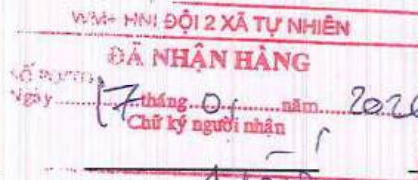 WM+ HNI ĐỘI 2 XÃ TỰ NHIÊN
ĐÃ NHẬN HÀNG
Ngày 17 tháng 01 năm 2026
Chữ ký người nhận